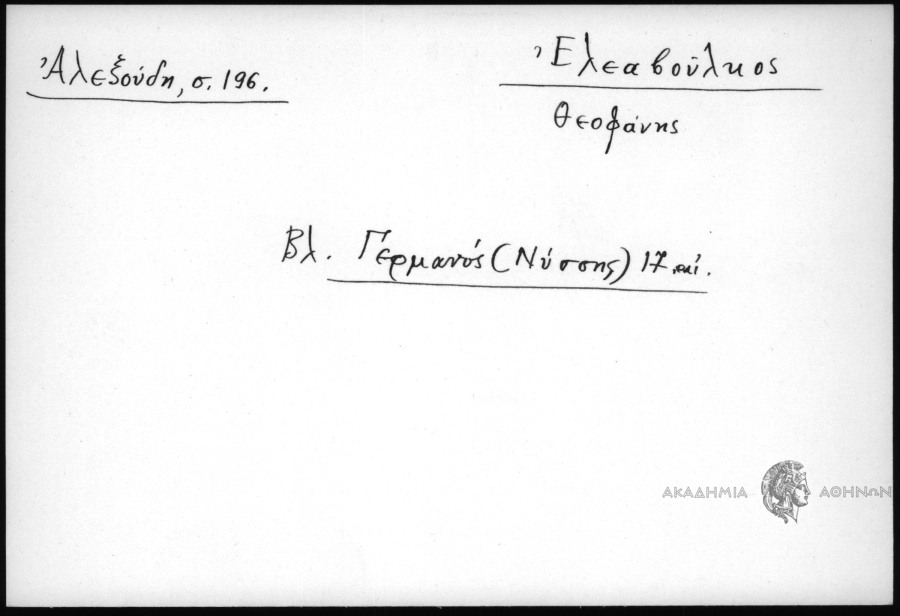 Ἀλεξούδη, σ. 196.
Ἐλεαβοῦλκος
Θεοφάνης
Βλ. Γερμανός (Νύσσης) 17
ΑΚΑΔΗΜΙΑ ΑΘΗΝΩΝ